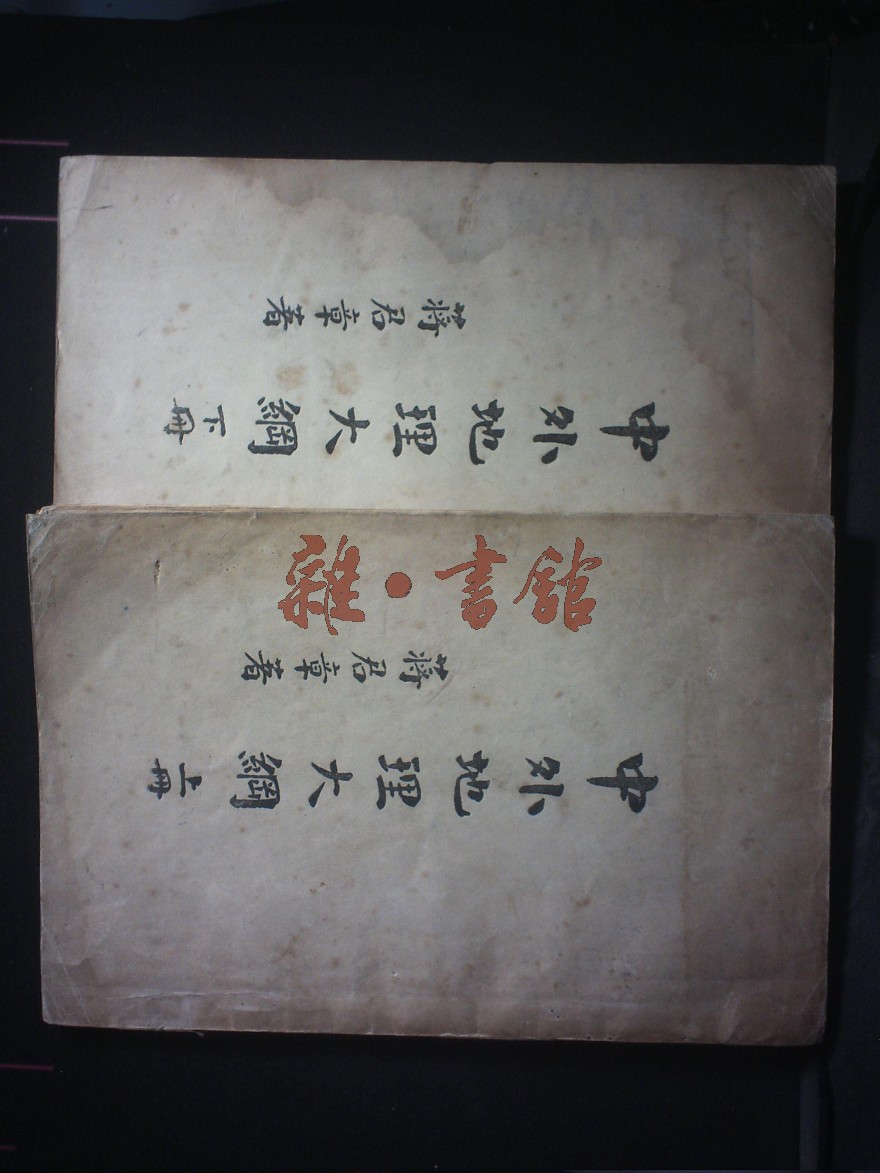 蔣君章著
中外地理大綱 下冊
雜·書館
蔣君章著
中外地理大綱 上冊